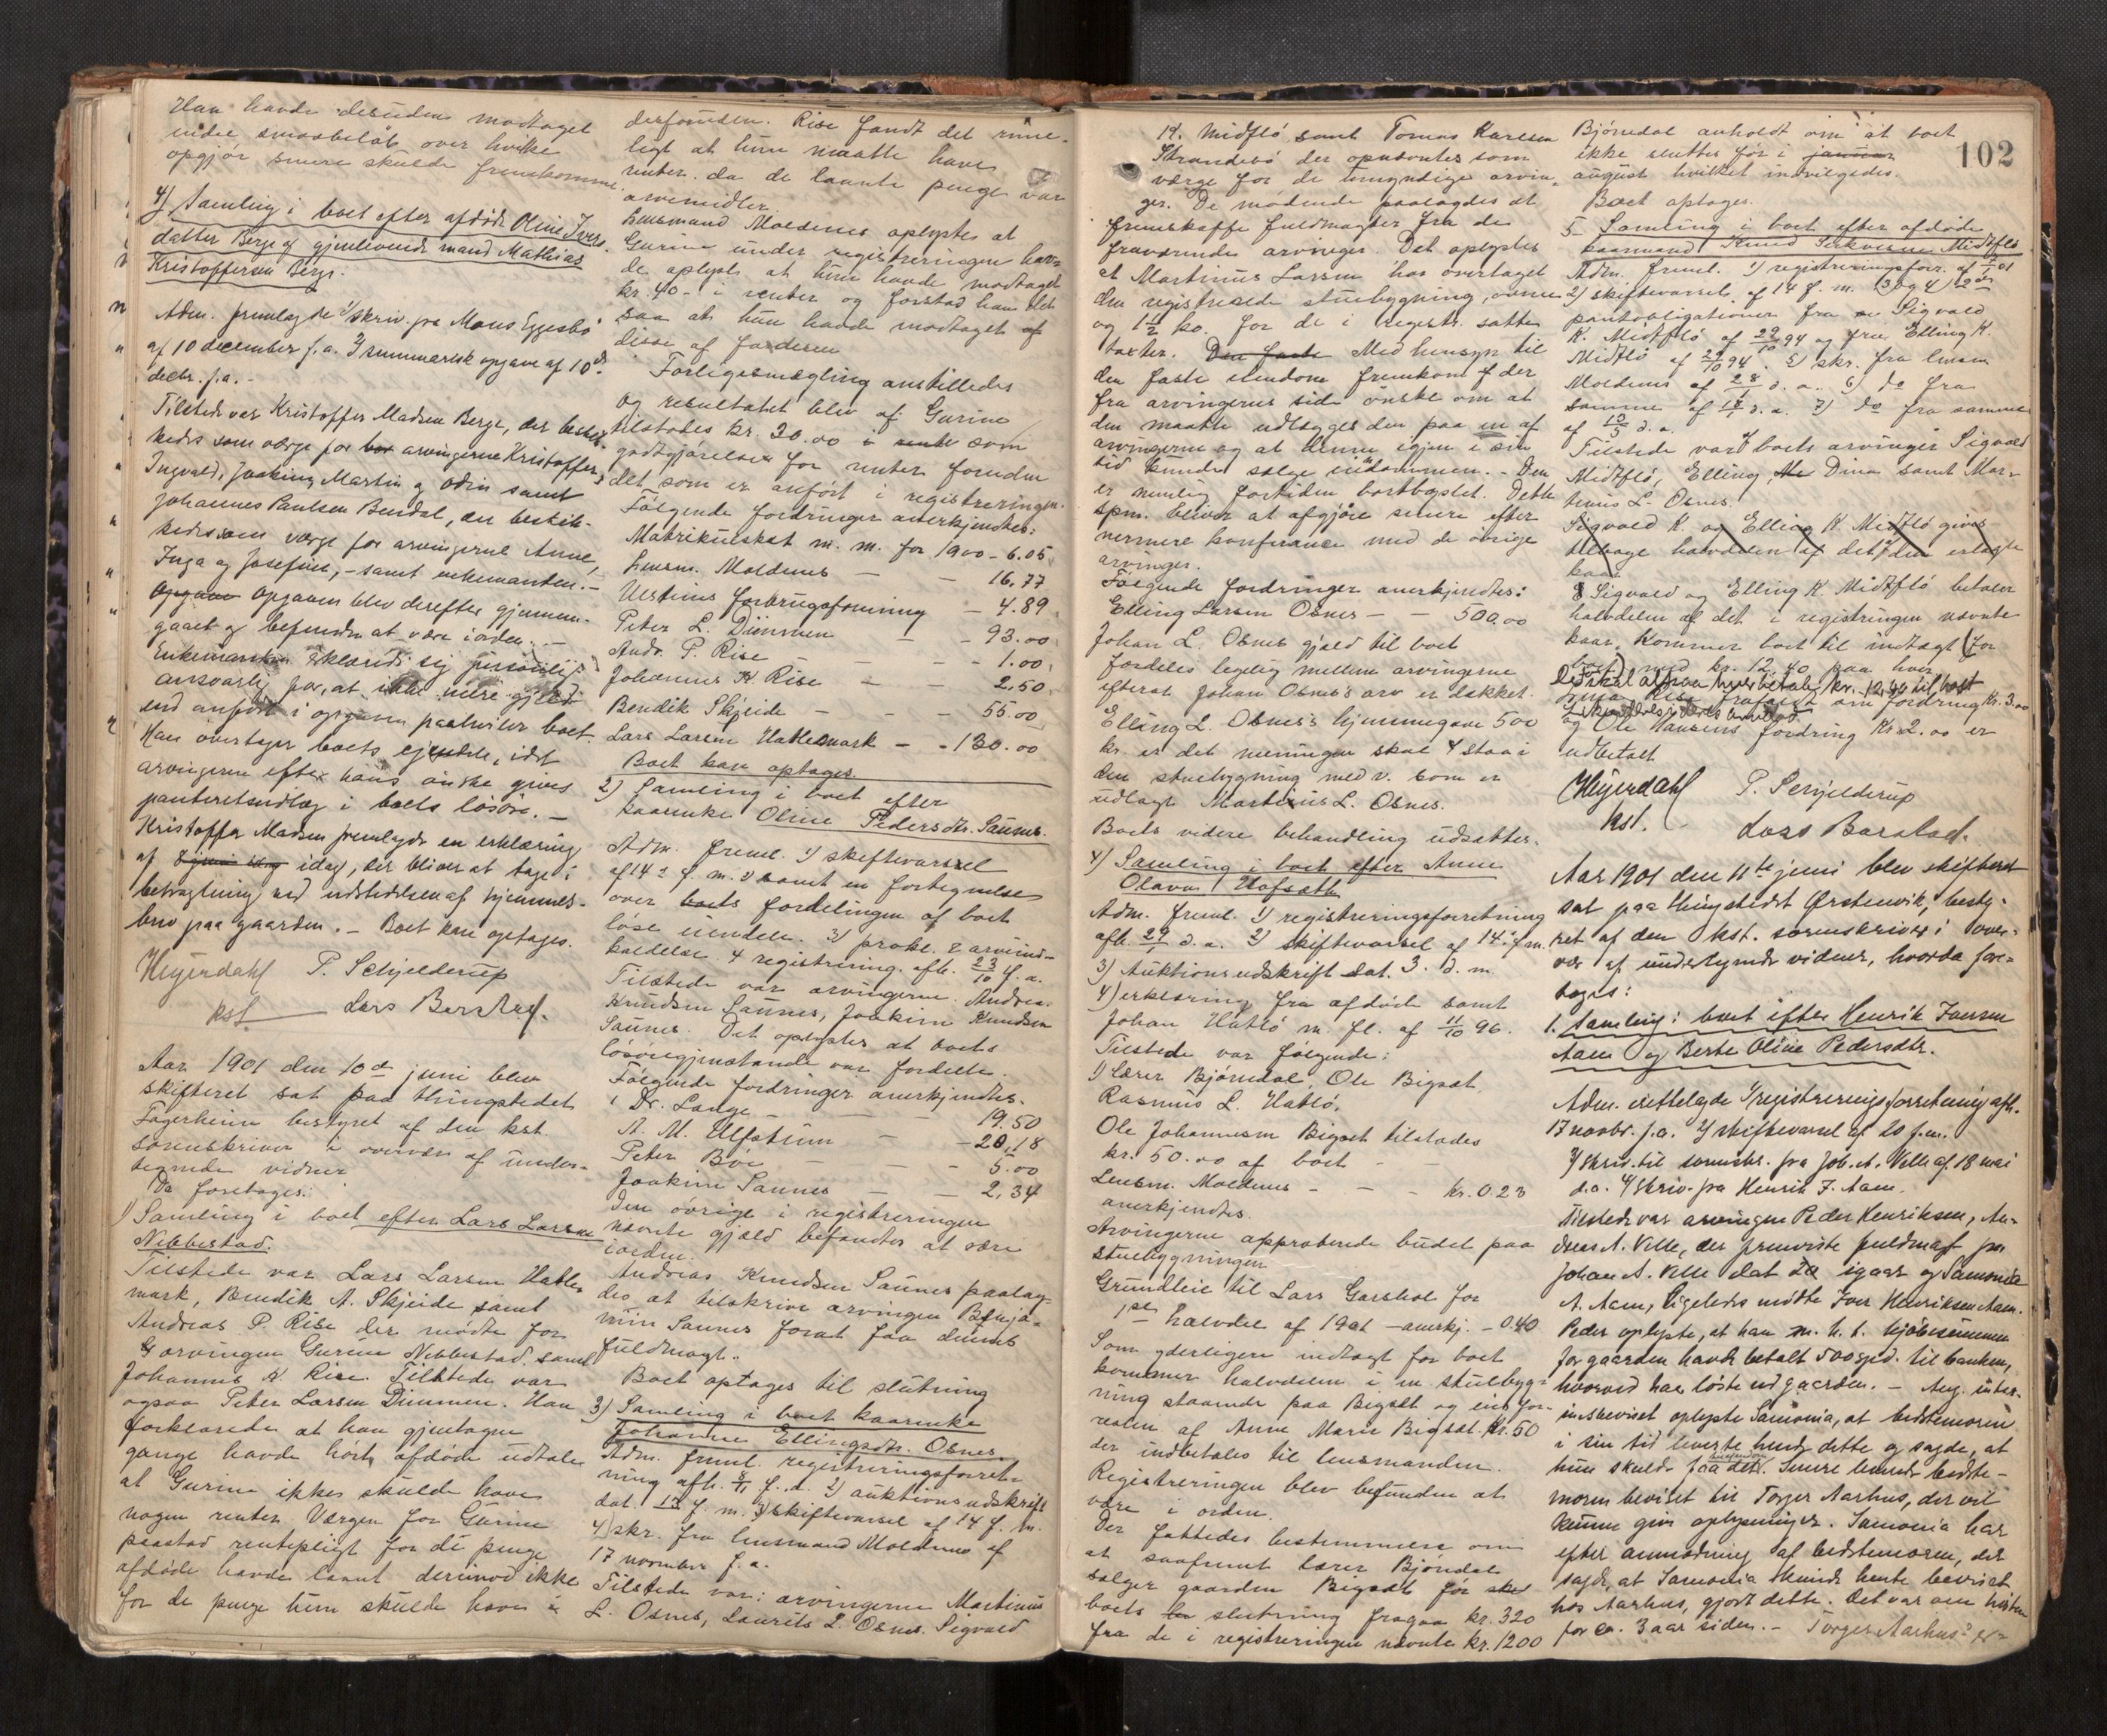 Han havde desuden modtaget
endel smaabeløb over hvilke
opgjør senere skulde fremkomme.
4) Samling i boet efter afdøde Oline Ivers-
datter Berge og gjenlevende mand Mathias
Kristoffersen Berge.
Adm. fremlagde 1/ skriv. fra Mons Eggesbø
af 10 december f.a. 2/ summarisk opgave af 10de
decbr. f.a. -
Tilstede var Kristoffer Madsen Berge, der beskik-
kedes som værge for arvingerne Kristoffer,
Ingvald, Joakim, Martin og Odin samt
Johannes Paulsen Berdal, der beskik-
kedes som værge for arvingerne Anne,
Inga og Josefine, - samt enkemanden. -
Opgaven Opgaven blev derefter gjennem-
gaaet og befundet at være i orden. -
Enkemanden erklærede sig personlig
ansvarlig for, at ikke mere gjæld
end anført i opgaven paahviler boet.
Han overtager boets ejendele, idet
arvingerne efter hans ønske gives
panteretsudlæg i boets løsøre. -
Kristoffer Madsen fremlagde en erklæring
af idag, der bliver at tage i
betragtning ved udstedelsen af hjemmels-
brev paa gaarden. - Boet kan optages.
Heyerdahl P. Schjelderup
kst. Lars Barstad.
Aar 1901 den 10de juni blev
skifteret sat paa thingstedet
Fagerheim bestyret af den kst.
sorenskriver i overvær af under-
tegnede vidner
Da foretages:
1) Samling i boet efter Lars Larsen
Nebbestad.
Tilstede var Lars Larsen Hatle-
mark, Bendik A. Skjeide samt
Andreas P. Rise der mødte for
G arvingen Gurine Nebbestad. samt
Johannes K. Rise. Tilstede var
ogsaa Peter Larsen Dimmen. Han
forklarede at han gjentagne
gange havde hørt afdøde udtale
at Gurine ikke skulde have
nogen renter. Værgen for Gurine
paastod rentepligt for de penge
afdøde havde laant derimod ikke
for de penge hun skulde have i
derforuden. Rise fandt det rime-
ligt at hun maatte have
renter. da de laante penge var
arvemidler.
Lensmand Moldenes oplystes at
Gurine under registreringen hav-
de oplyst at hun havde modtaget
kr. 40- i renter og forstod han det
saa at hun havde modtaget af
disse af faderen
Forligsmægling anstilledes
og resultatet blev at Gurine
tilstodes kr. 20.00 i rente som
godtgjørelse for renter foruden
det som er anført i registreringen.
Følgende fordringer anerkjendtes:
Matrikulskat m. m. for 1900 - 6.05
Lensm. Moldenes - - 16.77
Ulstens forbrugsforening - 4.89
Peter L. Dimmen - - 93.00
Andr. P. Rise - - - 1.00
Johannes K Rise - - 2.50
Bendik Skjeide - - - 55.00
Lars Larsen Hatlemark - - 130.00
Boet kan optages.
2) Samling i boet efter
kaarenke Oline Pedersdtr. Saunes.
Adm. freml. 1) skiftevarsel
af 14 f. m. 2) samt en fortegnelse
over boets fordelingen af boet
løse eiendele. 3) prokl. & arveind-
kaldelse. 4 registrering. afh. 23/10 f. a.
Tilstede var arvingerne. Andreas
Knudsen Saunes, Joakim Knudsen
Saunes. Det oplystes at boets
løsøregjenstande var fordelte.
Følgende fordringer anerkjendtes.
1 Dr. Lange - - - 19.50
A. M. Ulfstein - - 20,18
Peter Bøe - - - 5.00
Joakim Saunes - - 2,34
Den øvrige i registreringen
nævnte gjæld befandtes at være
iorden.
Andreas Knudsen Saunes paalag-
des at tilskrive arvingen Benja-
min Saunes forat faa dennes
fuldmagt..
Boet optages til slutning
3) Samling i boet kaarenke
Johanne Ellingsdtr. Osnes.
Adm. freml. registreringsforret-
ning afh. 8/11 f. a. 2) auktionsudskrift
dat. 12 f. m. 3) skiftevarsel af 14 f. m.
4) skr. fra lensmand Moldenes af
17 november f. a.
Tilstede var: arvingerne Martinus
L. Osnes, Laurits L. Osnes. Sigvald
102
K. Midtflø samt Tomas Karlsen
Strandebø der opnævntes som
værge for de umyndige arvin-
ger. De mødende paalagdes at
fremskaffe fuldmagter fra de
fraværende arvinger. Det oplystes
at Martinus Larsen har overtaget
den registrerede stuebygning, ovnen
og 1 1/2 ko. for de i registr. satte
takster. Den faste Med hensyn til
den faste eiendom fremkom der
fra arvingernes side ønske om at
den maatte udlægges den paa en af
arvingerne og at denne igjen i sin
tid kunde sælge eiendommen. - Den
er nemlig fortiden bortbygslet. Dette
spm. bliver at afgjøre senere efter
nærmere konferance med de øvrige
arvinger.
Følgende fordringer anerkjendtes:
Elling Larsen Osnes - - 500.00
Johan L. Osnes gjæld til boet
fordeles ligelig mellem arvingerne
efterat Johan Osnes's arv er dækket.
Elling L. Osnes's hjemmegave 500
kr. er det meningen skal staa i
den stuebygning med v. som er
udlagt Martinus L. Osnes.
Boets videre behandling udsættes.
4) Samling i boet efter Anne
Olava Hofsæth
Adm. freml. 1) registreringsforretning
afh. d. a. 2) skiftevarsel af 14. f. m.
3) Auktionsudskrift dat. 3. d. m.
4) erklæring fra afdøde samt
Johan Hatlø m. fl. af 11/10 96.
Tilstede var følgende:
1) Lærer Bjørndal, Ole Bigset,
Rasmus L. Hatlø.
Ole Johannesen Bigset tilstodes
kr. 50.00 af boet - -
Lensm. Moldenes - - - kr. 0.23
anerkjendtes.
Arvingerne approberede budet paa
stuebygningen
Grundleie til Lars Garshol for
1ste halvdel af 1901 - anerkj. - 0.40
Som yderligere indtægt for boet
kommer halvdelen i en stuebyg-
ning staaende paa Bigset og eies for-
resten af Anne Marie Bigset. Kr. 50
der indbetales til lensmanden.
Registreringen blev befunden at
være i orden.
Der fattedes bestemmelse om
at saafremt lærer Bjørndal
sælger gaarden Bigset før
boets slutning fragaa kr. 320
fra de i registreringen nævnte kr. 1200
Bjørndal anholdt om at boet
ikke sluttes før i januar
august hvilket indvilgedes.
Boet optages.
5 Samling i boet efter afdøde
kaarmand Knud Midtflø
Adm. freml. 1) registreringsforr. af 7/1 01
2) skiftevarsel af 14 f. m. 3 og 4) 2de
pantobligationer fra Sigvald
K. Midtflø af 29/10 94 og fra Elling K.
Midtflø af 29/10 94. 5) skr. fra lensm
Moldenes af d. a. 6) do fra
samme af d. a. 7) do fra samme
af d. a.
Tilstede var af boets arvinger Sigvald
Midtflø, Elling, Dina samt Mar-
tinus L. Osnes.
Sigvald K. og Elling K. Midtflø gives
tilbage halvdelen af det den erlagte
kaar.
Sigvald og Elling K. Midtflø betaler
halvdelen af det i registreringen nævnte
kaar. Kommer boet til indtægt (for
boet) med kr. 12.40 paa hver
De skal altsaa hver betale kr. 12.40 til boet
om fordring kr. 3.00
og Ole Hansens fordring Kr. 2.00 er
udbetalt
Heyerdahl P. Schjelderup
kst. Lars Barstad.
Aar 1901 den 11te juni blev skifteret
sat paa thingstedet Ørstenvik, besty-
ret af den kst. sorenskriver i over-
vær af undertegnede vidner, hvorda fore-
toges:
1. Samling i boet efter Henrik Iversen
Aam og Berte Oline Pedersdtr.
Adm. irettelagde 1/ registreringsforretning afh.
17 novbr. f.a. 2/ skiftevarsel af 20 f.m.
3/ skriv. til sorenskr. fra Joh. A. Velle af 18 mai
d.a. 4/ skriv. fra Henrik J. Aam.
Tilstede var arvingen Peder Henriksen, An-
dreas A. Velle, der fremviste fuldmagt fra
Johan A. Velle dat igaar og Samonia
A. Aam, ligeledes mødte Iver Henriksen Aam.
Peder oplyste, at han m. h. t. kjøbesummen
for gaarden havde betalt 500 spd. til banken,
hvorved han løste ud gaarden. - Ang. inter-
imsbeviset oplyste Samonia, at bedstemoren
i sin tid leverte hende dette og sagde, at
hun skulde faa det. Senere leverede bedste-
moren beviset til Torger Aarhus, der vil
kunne give oplysninger. Samonia har
efter anmodning af bedstemoren, der
sagde, at Samonia skulde hente beviset
hos Aarhus, gjort dette. Det var om høsten
for ca. 3 aar siden. - Torger Aarhus's er-